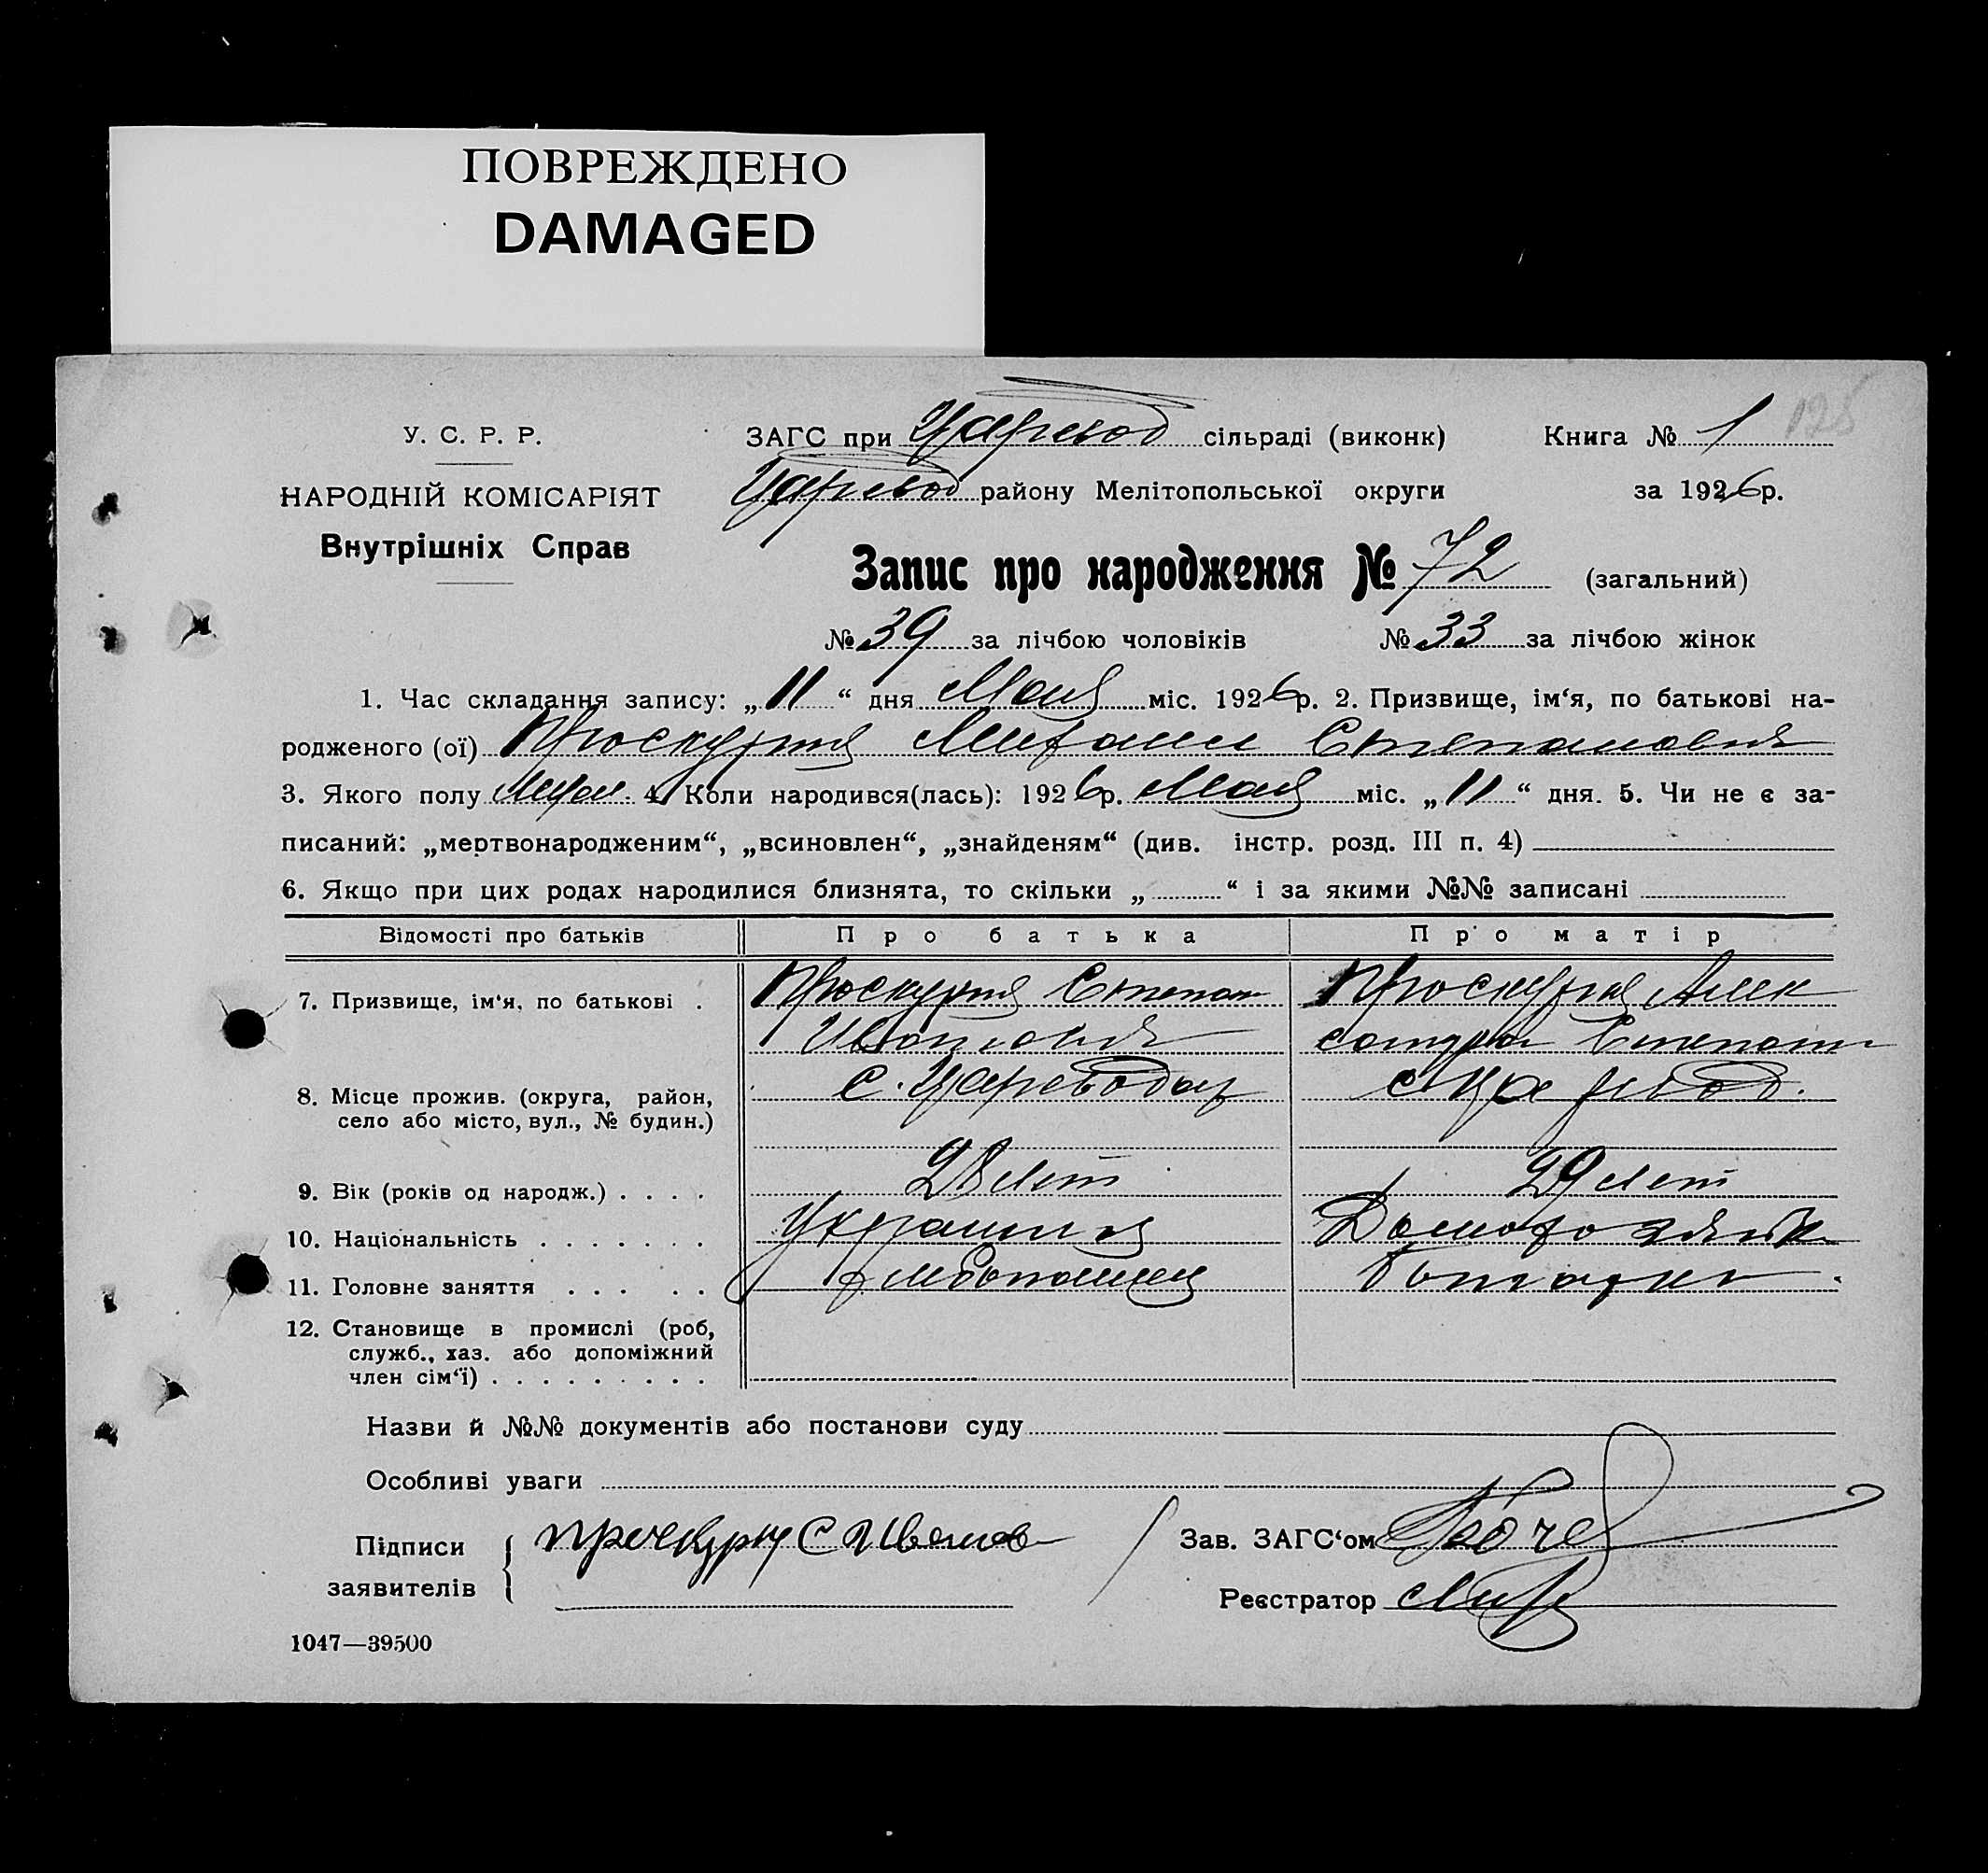 ПОВРЕЖДЕНО
DAMAGED
125
У. С. Р. Р.
НАРОДНІЙ КОМІСАРІЯТ
Внутрішніх Справ
ЗАГС при Царевод сільраді (виконк) Книга № 1
Царевод району Мелітопольської округи за 1926 р.
Запис про народження № 72 (загальний)
№ 39 за лічбою чоловіків № 33 за лічбою жінок
1. Час складання запису: „11“ дня Мая міс. 1926 р. 2. Призвище, ім‘я, по батькові на-
родженого (ої) Проскурня Степанович
3. Якого полу Муж. 4. Коли народився(лась): 1926 р. Мая міс. „11“ дня. 5. Чи не є за-
писаний: „мертвонародженим“, „всиновлен“, „знайденям“ (див. інстр. розд. III п. 4)
6. Якщо при цих родах народилися близнята, то скільки „ “ і за якими №№ записані
Відомості про батьків Про батька Про матір
7. Призвище, ім‘я, по батькові . Проскурня Степан Проскурня Алек
Иванович сандра Степан
8. Місце прожив. (округа, район, с. Цареводар с Царевод.
село або місто, вул., № будин.)
9. Вік (років од народж.) . . . . 28 лет 29 лет
10. Національність . . . . . . . Домохозяйк
11. Головне заняття . . . . .
12. Становище в промислі (роб,
служб., хаз. або допоміжний
член сім‘ї) . . . . . . . . .
Назви й №№ документів або постанови суду
Особливі уваги
Підписи
заявителів
Зав. ЗАГС‘ом
Реєстратор
1047—39500